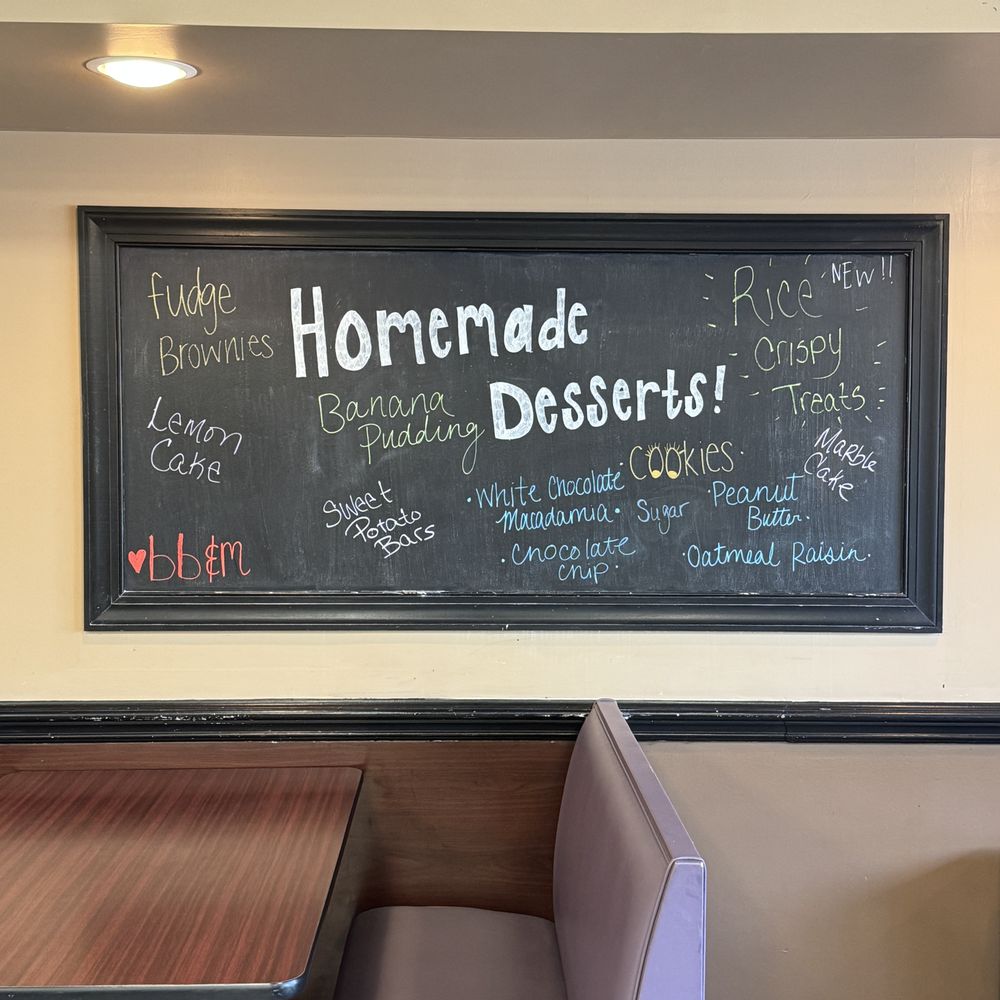 Homemade
Desserts!
fudge
Brownies
Lemon
Cake
♥bb&m
Banana
Pudding
Sweet
Potato
Bars
COOKIES
·White Chocolate
Macadamia·
Sugar
·Peanut
Butter·
·Chocolate
Chip·
·Oatmeal Raisin·
NEW!!
Rice
Crispy
Treats
Marble
Cake